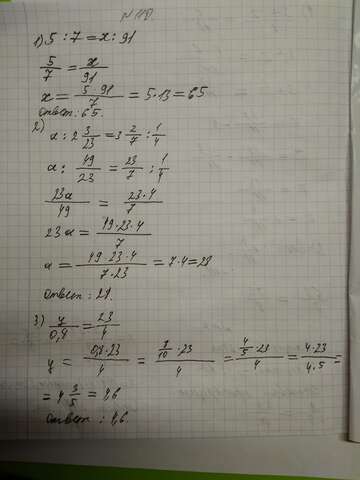 1) 5 : 7 = x : 91
5/7 = x/91
x = 5 · 91/7 = 5 · 13 = 65
Ответ: 65.
2)
a : 2 3/23 = 3 2/7 : 1/4
a : 49/23 = 23/7 : 1/4
23a/49 = 23·4/7
23a = 49·23·4/7
a = 49·23·4/7·23 = 7·4 = 28
Ответ: 28.
3) y/0,8 = 23/4
y = 0,8·23/4 = 8/10 ·23/4 = 4/5 ·23/4 = 4·23/4·5 =
= 4 3/5 = 4,6
Ответ: 4,6.